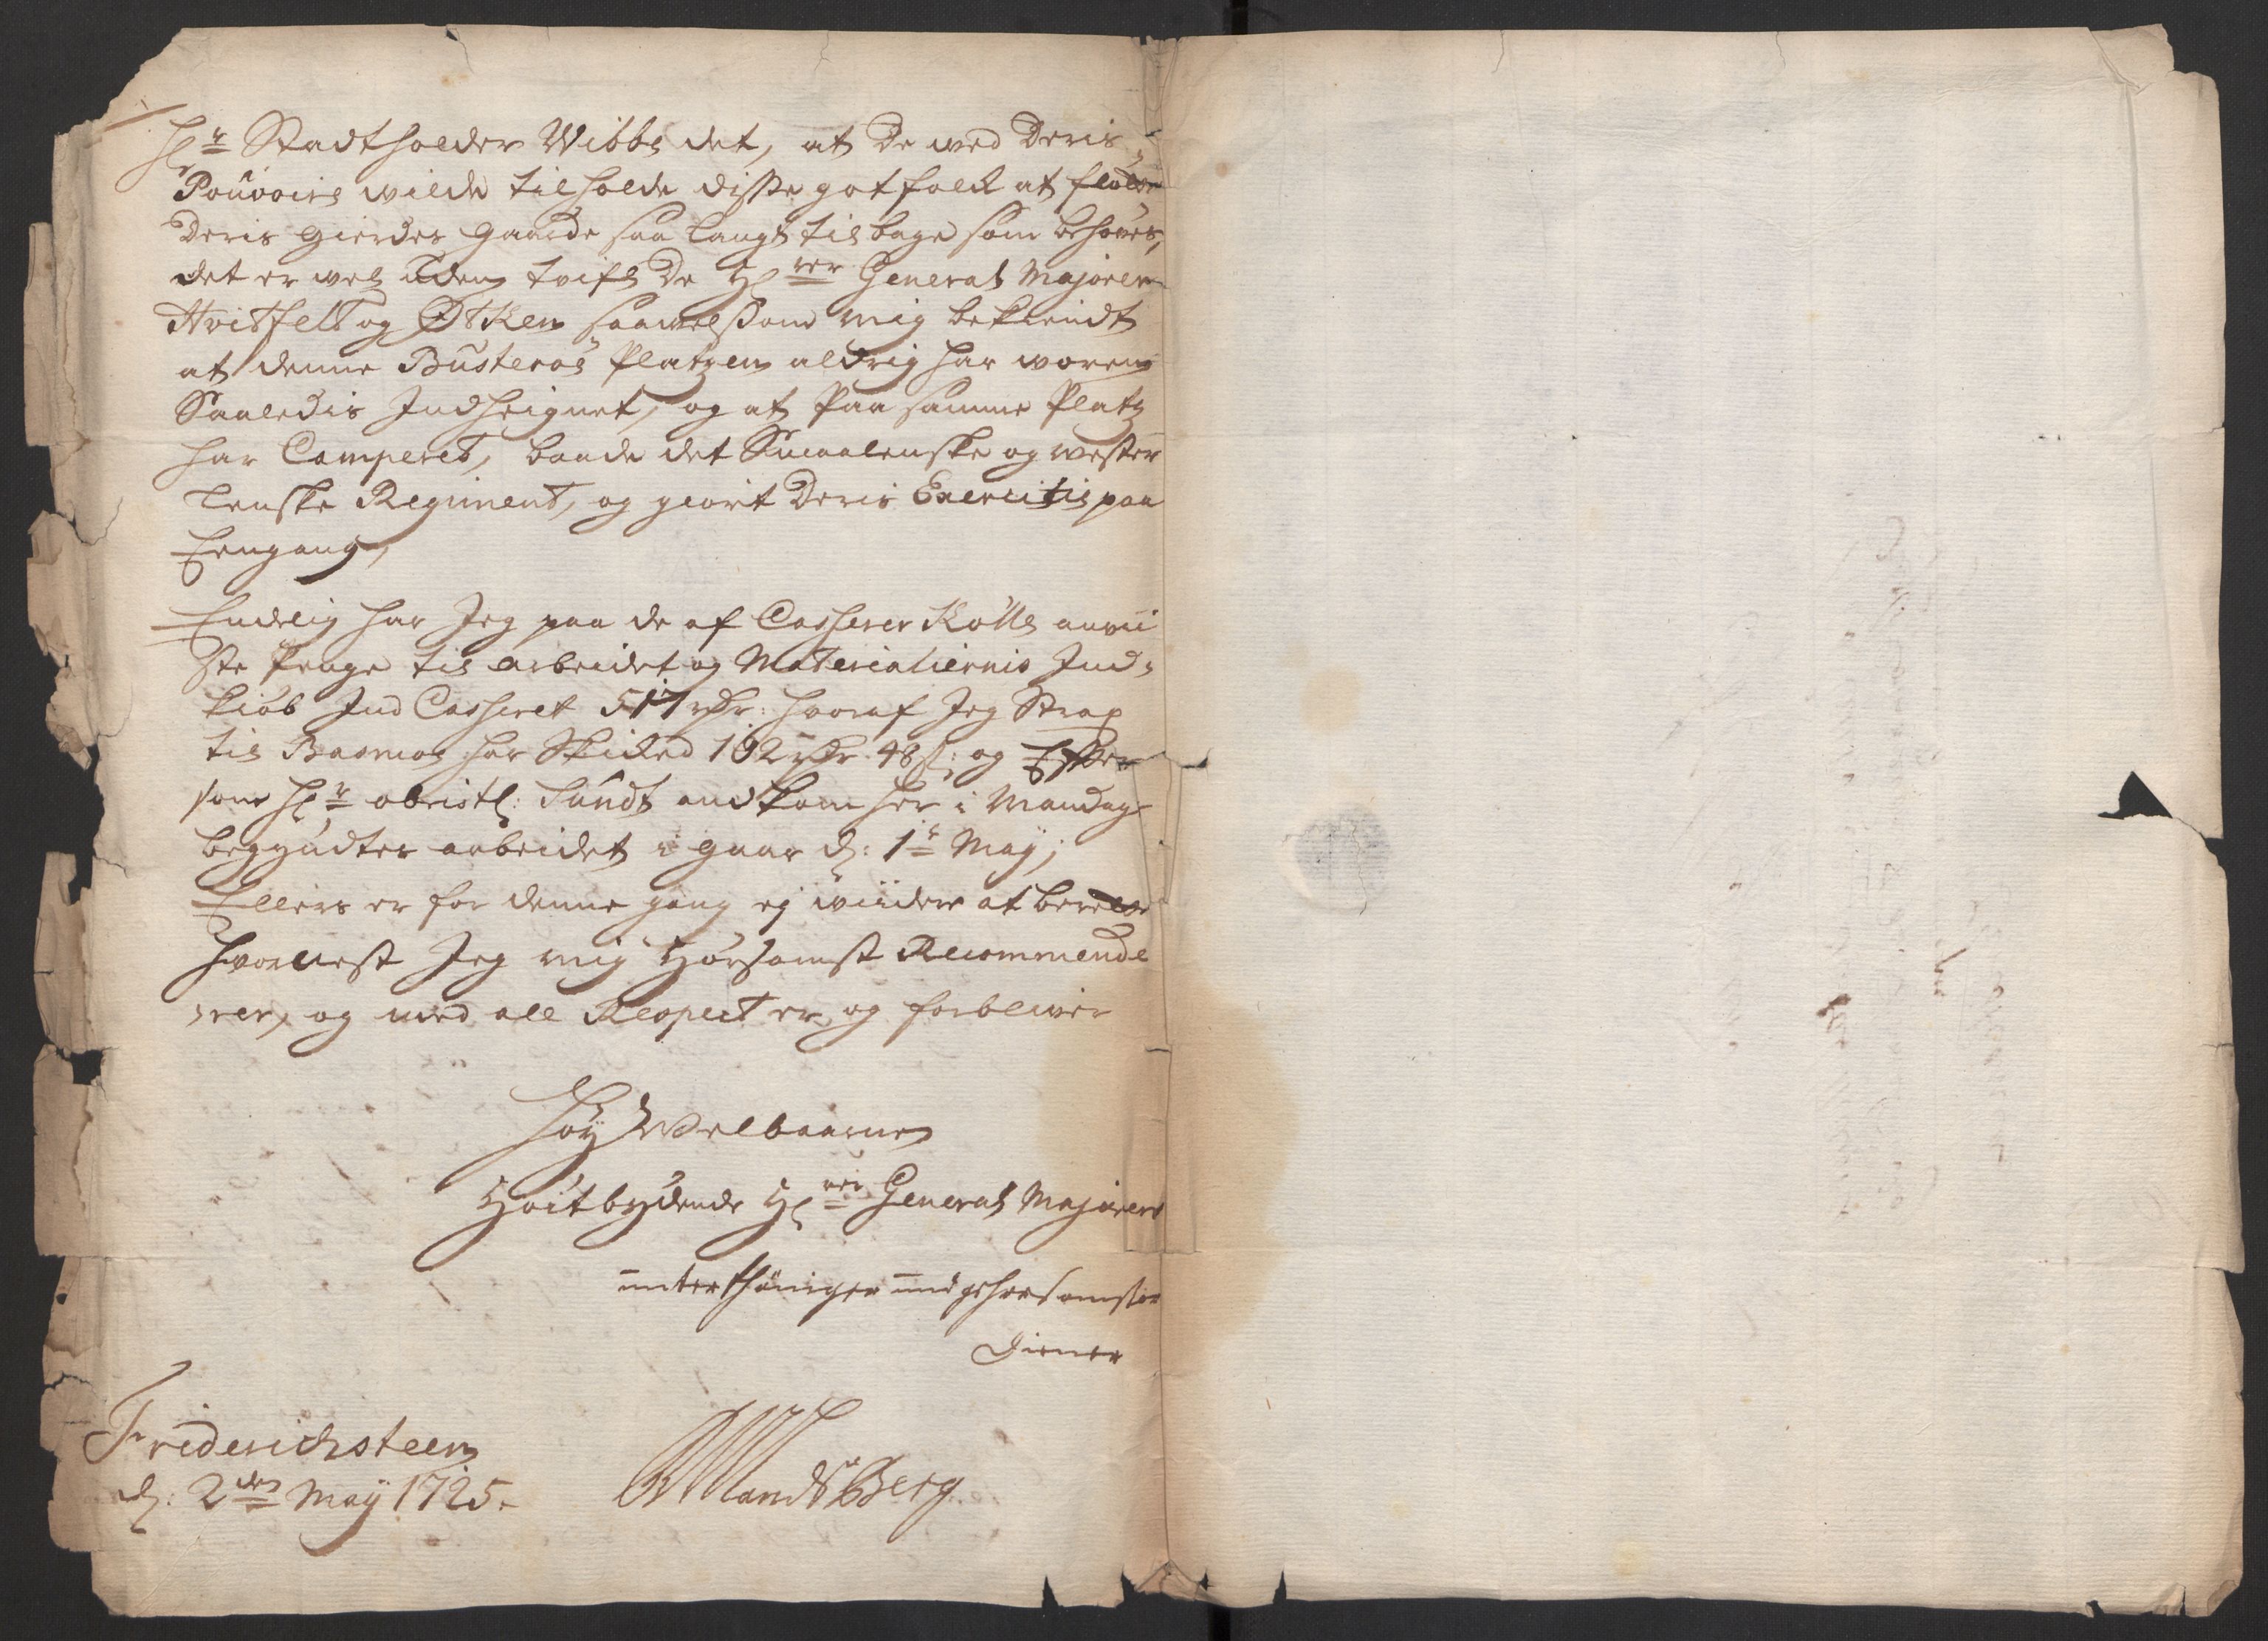 Hr Stadtholder Wibbe det, at De med Deris
Pouvoire wilde tilholde disse got folck at flötte
Deris gierdes gaarde saa langt tilbage som behöves,
det er vel uden tvifl De Hrer General Majorer
Hvitfelt og Ötken saavelsom mig bekiendt
at denne Busteroe Platzen aldrig har woren
Saaledis Indheignet, og at paa samme Platz
har Camperet, baade det Smaalenske og wester
lenske Regiment, og giort Deris Exercitie paa
Eengang,
Endelig har Jeg paa de af Casserer Kölle anvii
ste Penge til arbeidet og Materialiernis Ind-
kiöb Ind Casseret 517 rdr: hvoraf Jeg Strax
til Basmoe har Skicked 192 rdr 48 s: og Efter
som Hr obristl: Sundt ankom her i Mandags
begyndtes arbeidet i gaar d: 1te May;
Ellers er for denne gang ej viidere at berette
hvornest Jeg mig Hörsomst Recommende
rer, og med all Respect er og forblever
Höy Welbaarne
Höitbydende Hrer General Majorers
unterthäniger und gehorsamster
Diener
Friderichsteen
d: 2den May 1725.
LandtBerg